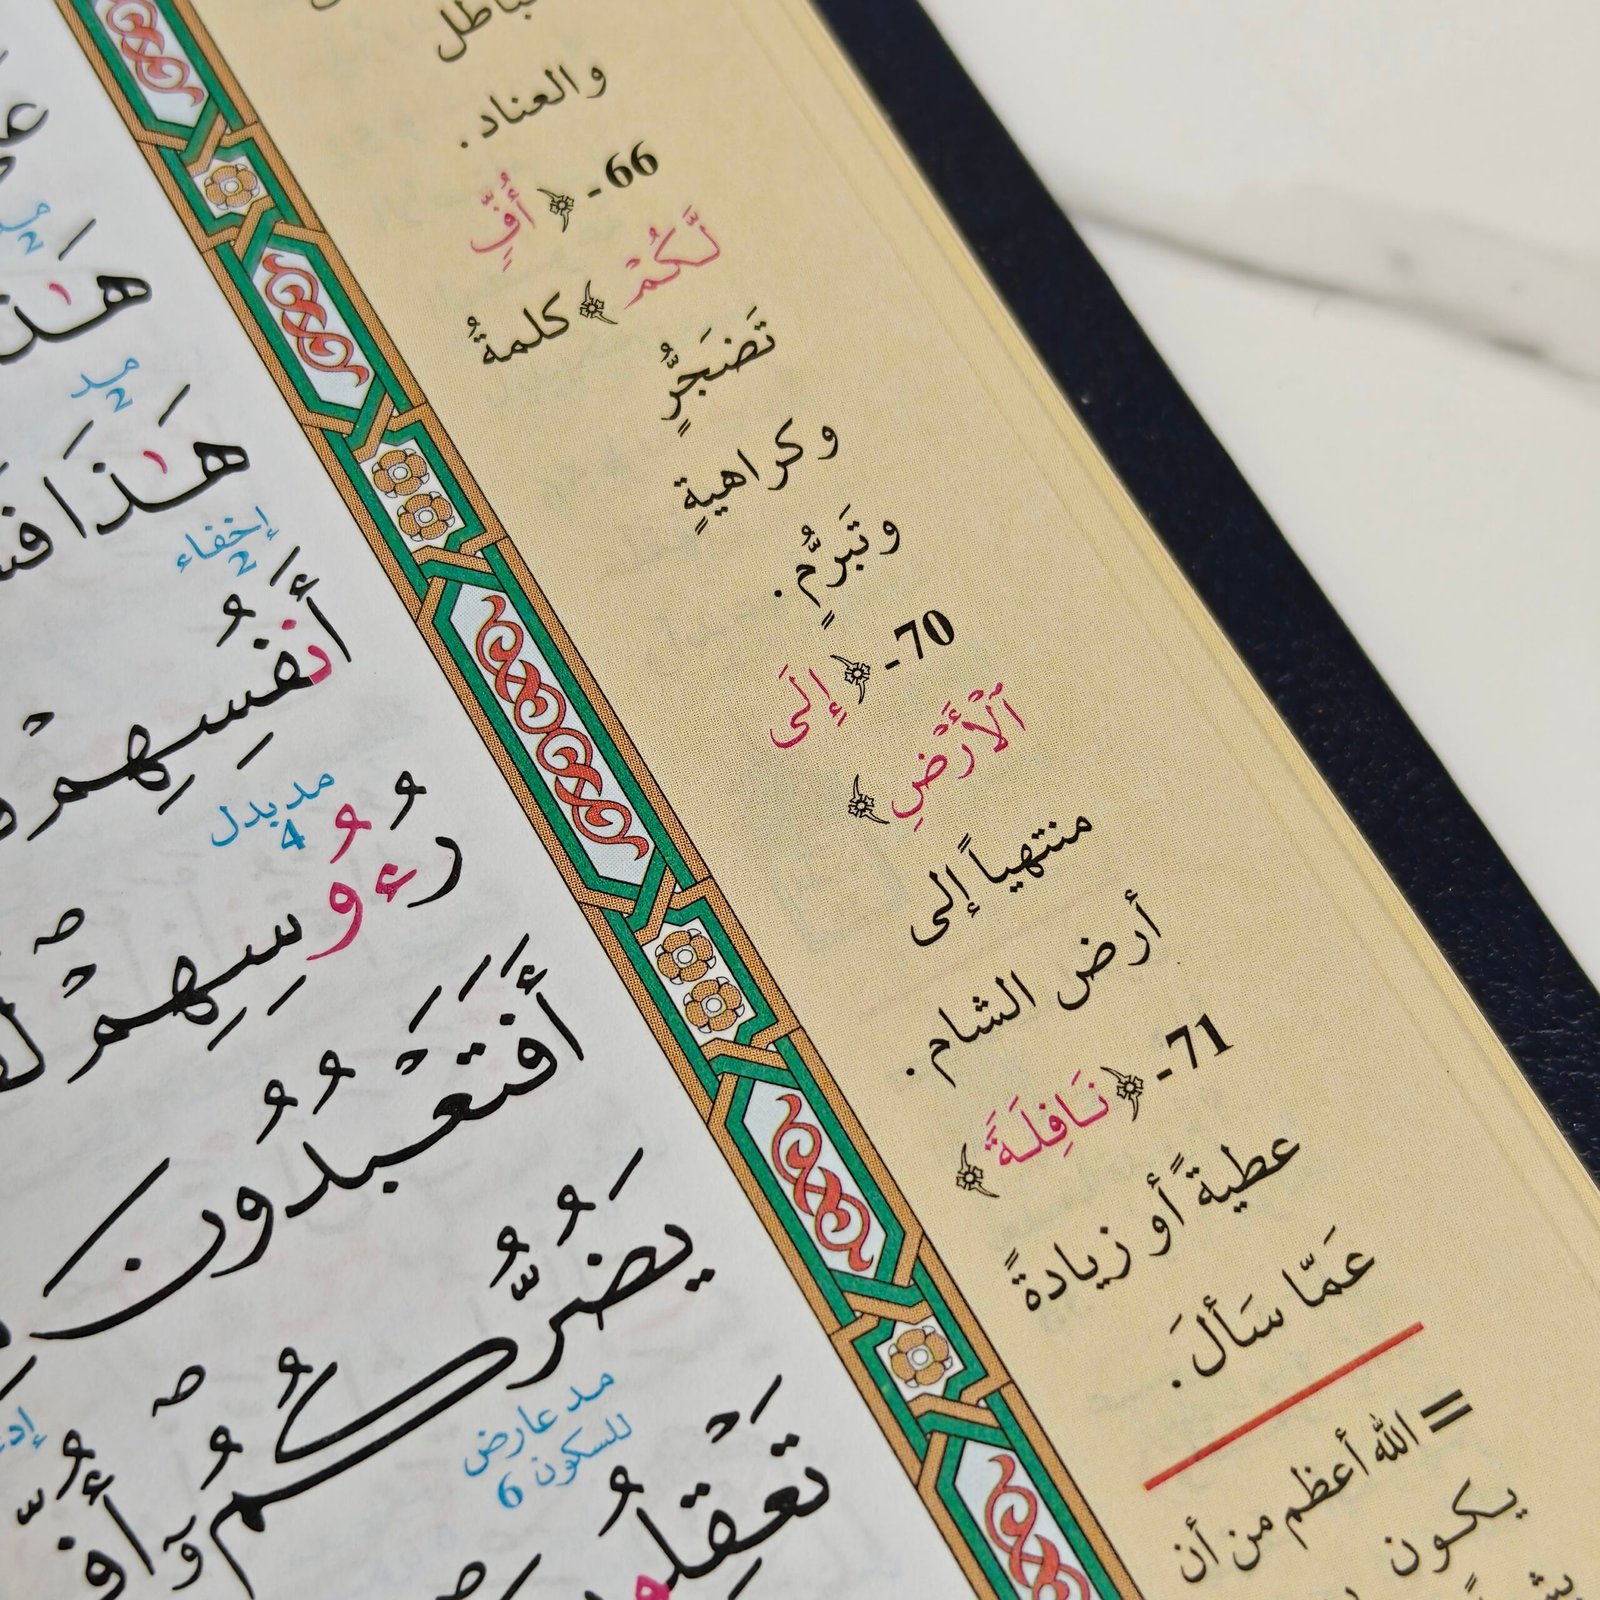 والعناد.
66- ﴿أُفٍّ
لَّكُمْ﴾ كلمةُ
تَضَجُّرٍ
وكراهيةٍ
وتَبَرُّمٍ.
70- ﴿إِلَى
ٱلْأَرْضِ﴾
منتهياً إلى
أرض الشام.
71- ﴿نَافِلَةً﴾
عطيةً أو زيادةً
عَمّا سَأَلَ.
= الله أعظم من أن
يكون
مد
2
مد
2
هَٰذَا
إخفاء
2
أَنفُسِهِمْ
مد بدل
4
رُءُوسِهِمْ
أَفَتَعْبُدُونَ
يَضُرُّكُمْ
مد عارض
للسكون 6